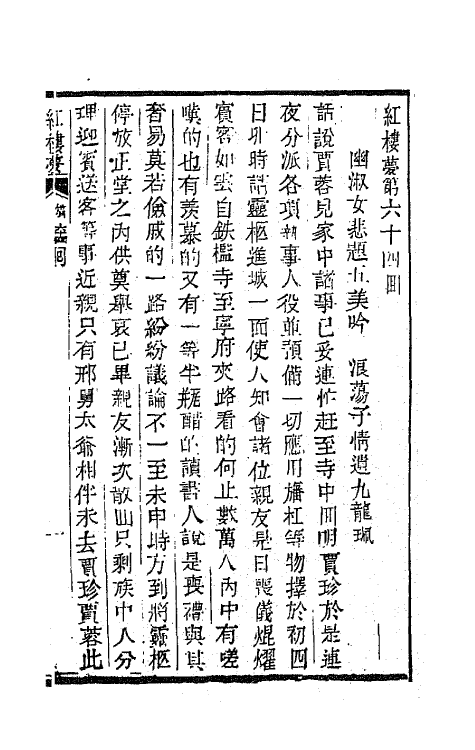 紅樓夢第六十四回
幽淑女悲題五美吟 浪蕩子情遺九龍珮
話說賈蓉見家中諸事已妥連忙赶至寺中回明賈珍於是連
夜分派各項執事人役並預備一切應用旛杠等物擇於初四
日卯時請靈柩進城一面使人知會諸位親友是日喪儀焜耀
賓客如雲自鉄檻寺至寧府夾路看的何止數萬人內中有嗟
嘆的也有羡慕的又有一等半瓶醋的讀書人說是喪禮與其
奢易莫若儉戚的一路紛紛議論不一至未申時方到將靈柩
停放正堂之內供奠舉哀已畢親友漸次散囘只剩族中人分
理迎賓送客等事近親只有邢舅太爺相伴未去賈珍賈蓉此
紅樓夢 第 回
一